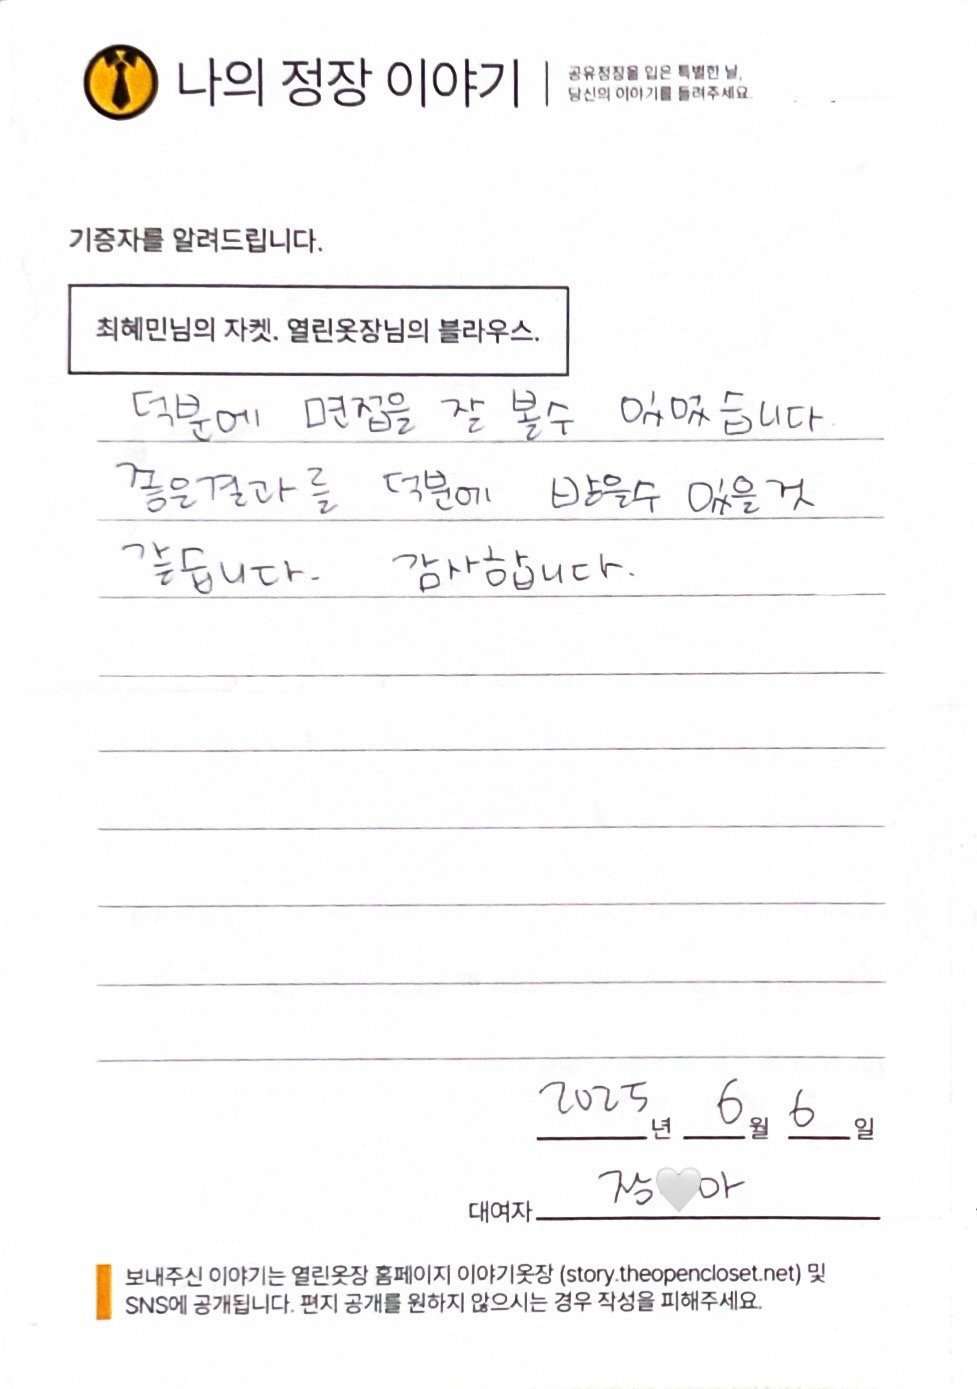 나의 정장 이야기
공유정장을 입은 특별한 날,
당신의 이야기를 들려주세요.
기증자를 알려드립니다.
최혜민님의 자켓. 열린옷장님의 블라우스.
덕분에 면접을 잘 볼수 있었습니다.
좋은결과를 덕분에 받을수 있을것
같습니다. 감사합니다.
2025년 6월 6일
대여자 장🤍아
보내주신 이야기는 열린옷장 홈페이지 이야기옷장 (story.theopencloset.net) 및
SNS에 공개됩니다. 편지 공개를 원하지 않으시는 경우 작성을 피해주세요.